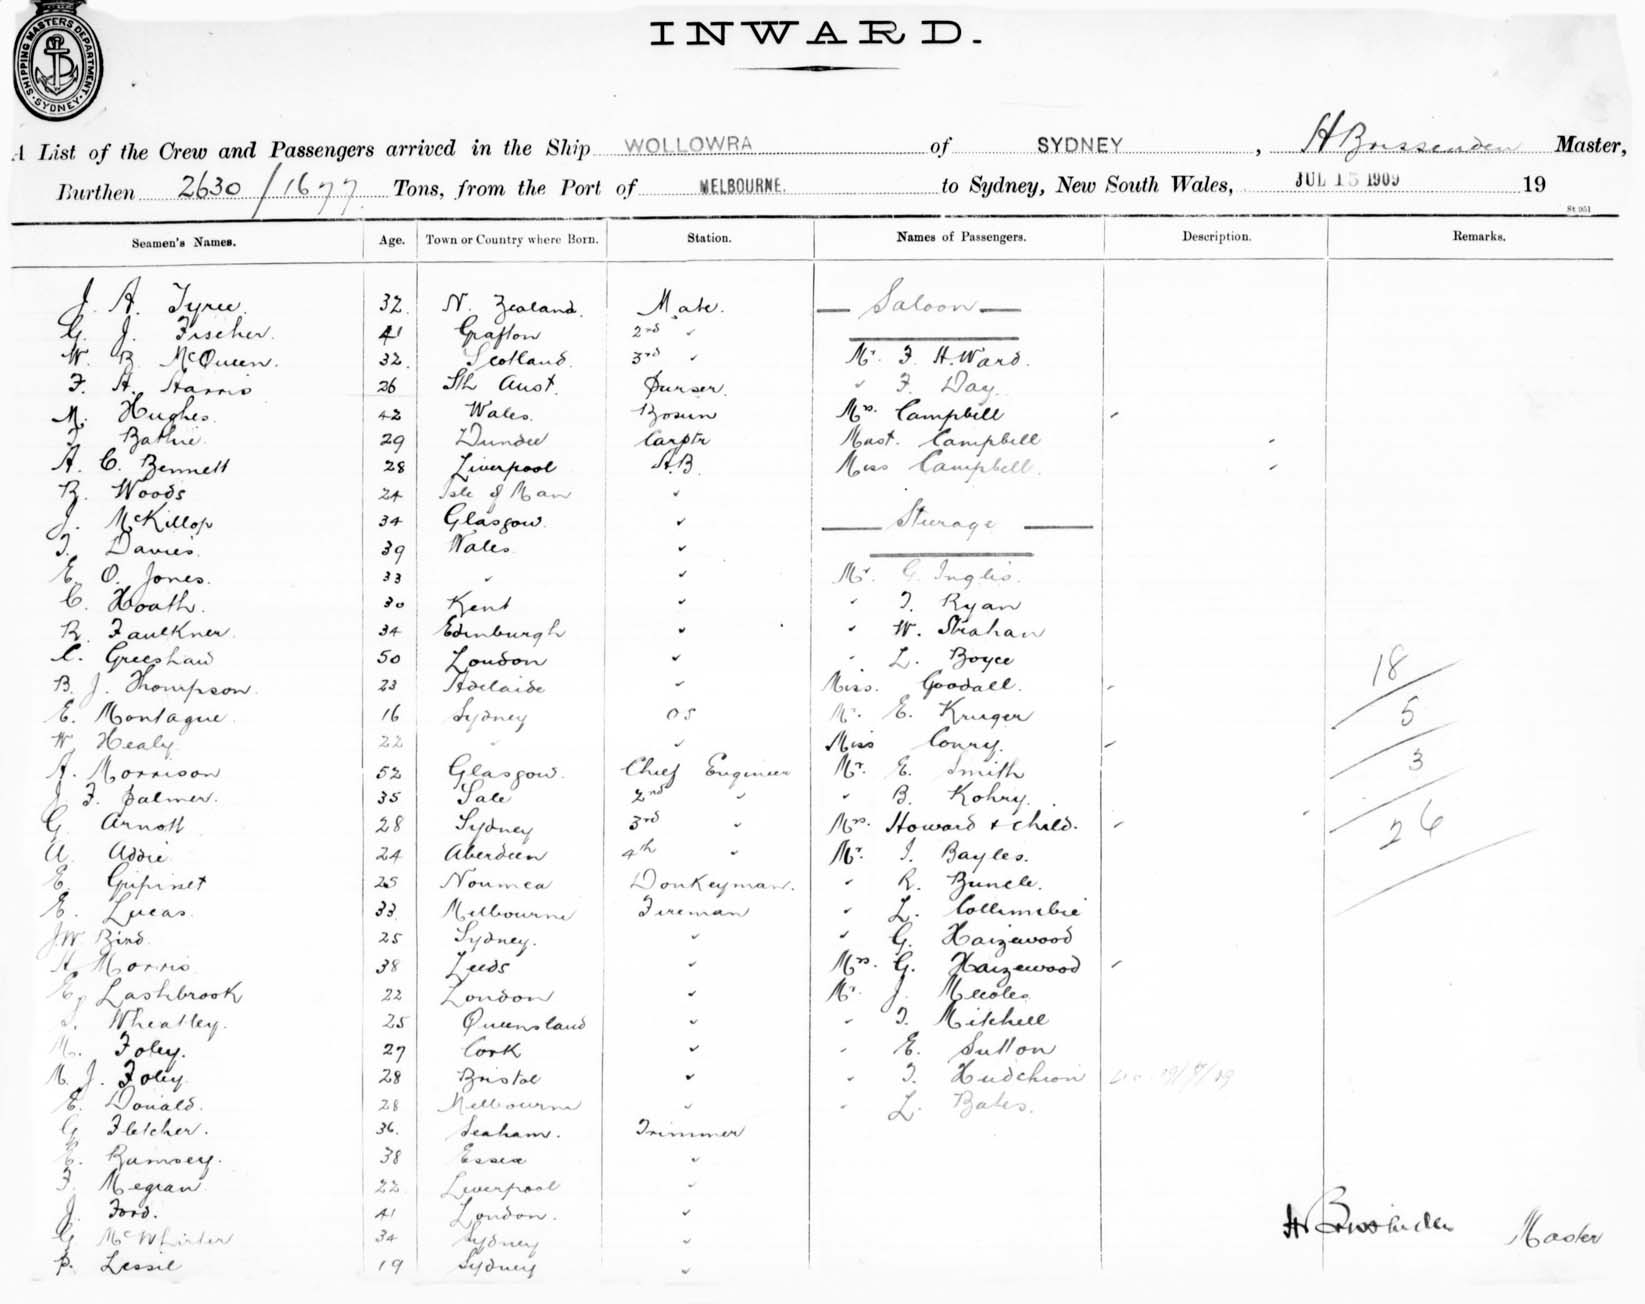 SHIPPING MASTERS DEPARTMENT
SYDNEY
INWARD.
A List of the Crew and Passengers arrived in the Ship WOLLOWRA of SYDNEY, H Brissenden Master,
Burthen 2630/1677 Tons, from the Port of MELBOURNE. to Sydney, New South Wales, JUL 15 1909 19
St 951
Seamen's Names. Age. Town or Country where Born. Station. Names of Passengers. Description. Remarks.
J. A. Tyree. 32. N. Zealand. Mate. — Saloon —
G. J. Fischer. 41 Grafton 2nd "
W. B. McQueen. 32. Scotland. 3rd " Mr. F. H. Ward.
F. A. Harris 26 Sth Aust. Purser. " F. Day
M. Hughes. 42 Wales. Bosun Mrs. Campbell
Bathie. 29 Dundee Carptr Mast. Campbell
A. C. Bennett 28 Liverpool A.B. Miss Campbell.
R. Woods 24 Isle of Man "
J. McKillop 34 Glasgow. " — Sturage —
T. Davies. 39 Wales. "
E. O. Jones. 33 " " Mr. G. Inglis.
C. Hoath. 30 Kent " " T. Ryan
R. Faulkner. 34 Edinburgh " " W. Strahan
C. Greeshaw 50 London " " L. Boyce
B. J. Thompson. 23 Adelaide " Miss. Goodall.
E. Montague. 16 Sydney OS Mr. E. Kruger
W. Healy 22 " " Miss Conry.
A. Morrison 52 Glasgow. Chief Engineer Mr. E. Smith
J. F. Palmer. 35 Sale 2nd " " B. Kohry.
G. Arnott 28 Sydney 3rd " Mrs. Howard & child.
A. Addie 24 Aberdeen 4th " Mr. J. Bayles.
E. 25 Noumea Donkeyman. " R. Buncle.
E. Lucas. 33. Melbourne Fireman " L. Collumbie
J.W. Bird. 25 Sydney. " " G. Haizewood
H. Morris 38 Leeds " Mrs. G. Haizewood
E. Lashbrook 22 London " Mr. J. Meeoles
Wheatley. 25 Queensland " " T. Mitchell
M. Foley. 27 Cork " " E. Sutton
M. J. Foley 28 Bristol " " T. Hudchion
E. Donald. 28 Melbourne " " L. Bates.
G. Fletcher. 36. Seaham. Trimmer
E. Rumsey. 38 Essex "
F. Megran. 22 Liverpool "
J. Ford. 41 London. "
G. McWhirter 34 Sydney "
P. Lessil 19 Sydney "
18
5
3
26
H. Brissenden Master